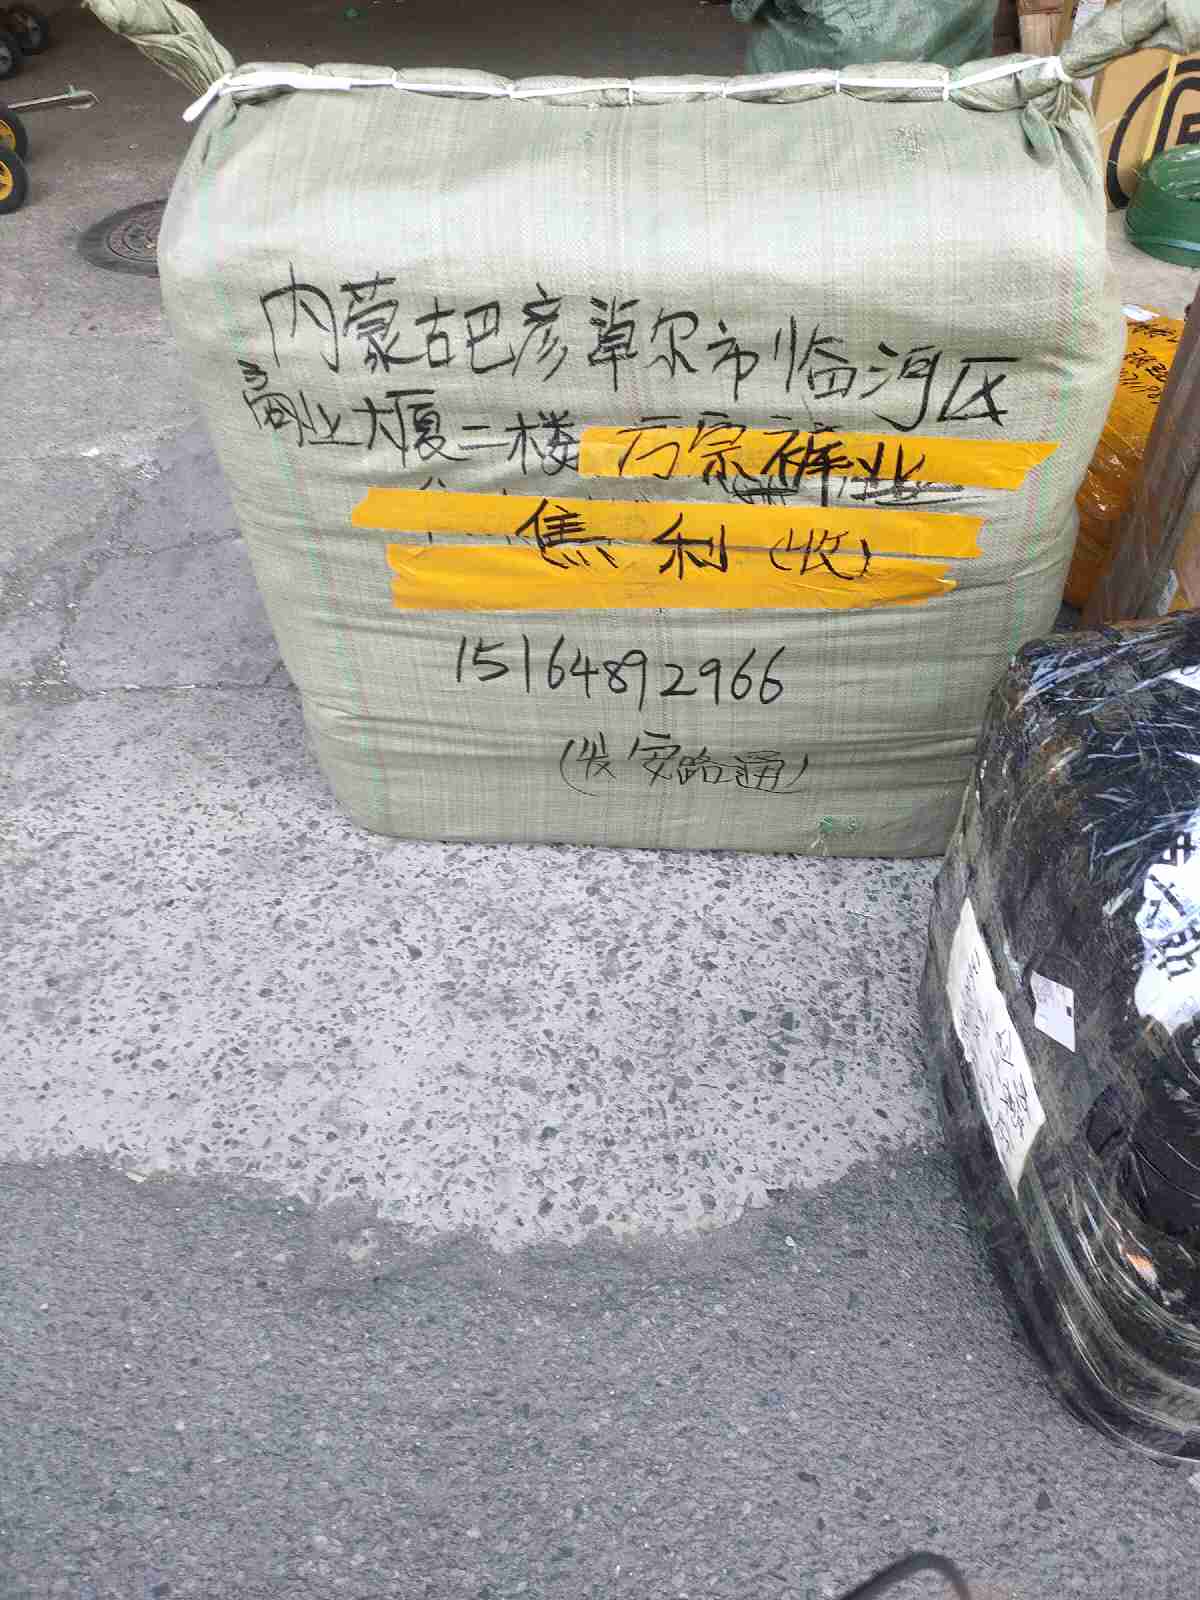 内蒙古巴彦淖尔市临河区
商业大厦二楼万宗裤业
焦利(收)
15164892966
(发安路通)